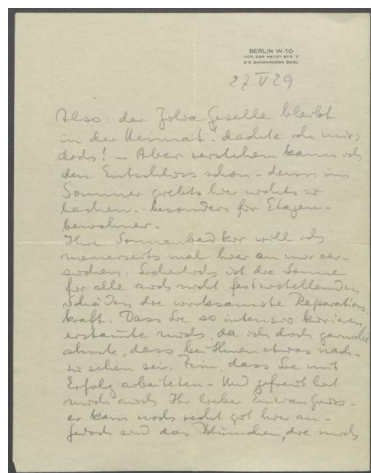 BERLIN W·10
VON DER HEYDT STR 7
27. V 29
Also: der Geselle bleibt
in der Heimat! dachte ich mirs
doch! – Aber verstehen kann ich
den Entschluss schon – denn im
Sommer giebts hier nichts zu
lachen – besonders für Etagen-
bewohner.
Ihre Sonnenbad kur will ich
meinerseits mal hier an mir ver-
suchen. Sicherlich ist die Sonne
für alle auch nicht festzustellenden
Schäden die wirksamste Reparations
kraft. Dass Sie so intensiv kurieren,
erstaunte mich, da ich doch garnicht
ahnte, dass bei Ihnen etwas nach-
zusehen sei. Fein, dass Sie mit
Erfolg arbeiteten – Und gefreut hat
mich auch Ihr lieber
er kam noch recht gut hier an –
jedoch sind das Blümchen, die mich